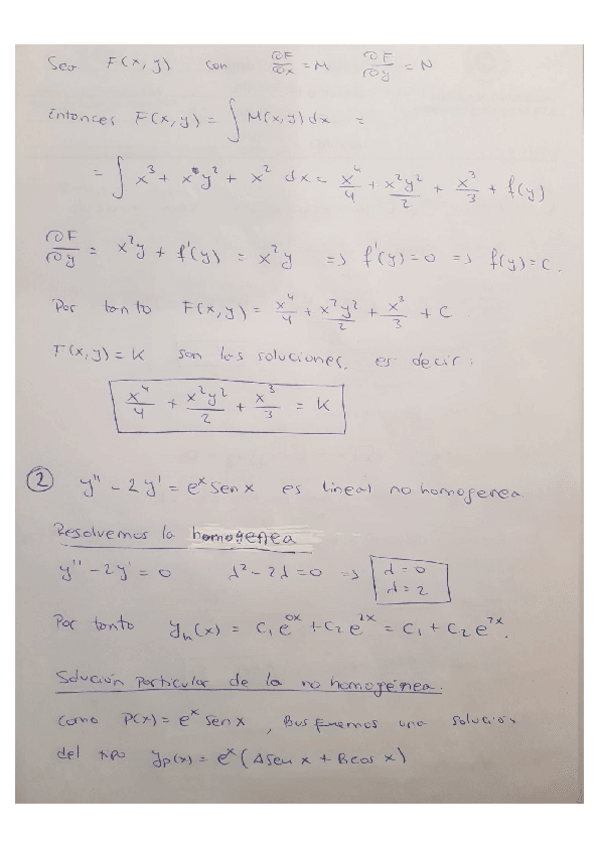 Sea F(x,y) con ∂F/∂x = M ∂F/∂y = N
Entonces F(x,y) = ∫ M(x,y) dx =
= ∫ x³ + xy² + x² dx = x⁴/4 + x²y²/2 + x³/3 + f(y)
∂F/∂y = x²y + f'(y) = x²y => f'(y) = 0 => f(y) = C.
Por tanto F(x,y) = x⁴/4 + x²y²/2 + x³/3 + C
F(x,y) = K son las soluciones, es decir:
x⁴/4 + x²y²/2 + x³/3 = K
② y'' - 2y' = eˣ sen x es lineal no homogenea
Resolvemos la homogenea
y'' - 2y' = 0 λ² - 2λ = 0 => λ = 0
λ = 2
Por tanto yₕ(x) = C₁e⁰ˣ + C₂e²ˣ = C₁ + C₂e²ˣ.
Solución particular de la no homogénea.
Como P(x) = eˣ sen x, busquemos una solución
del tipo yₚ(x) = eˣ (A sen x + B cos x)